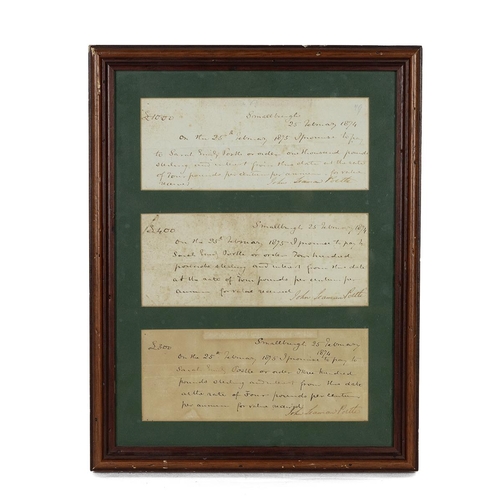 £1000 Smallburgh
25 February 1874
On the 25th February 1875 I promise to pay
to Sarah Postle or order one thousand pounds
sterling and interest from this date at the rate
of Four pounds per centum per annum for value
received John Postle
£400 Smallburgh 25 February 1874
On the 25th February 1875 I promise to pay to
Sarah Postle or order Four hundred
pounds sterling and interest from this date
at the rate of Four pounds per centum per
annum for value received John Postle
£300 Smallburgh 25 February
1874
On the 25th February 1875 I promise to pay to
Sarah Postle or order Three hundred
pounds sterling and interest from this date
at the rate of Four pounds per centum
per annum for value received John Postle